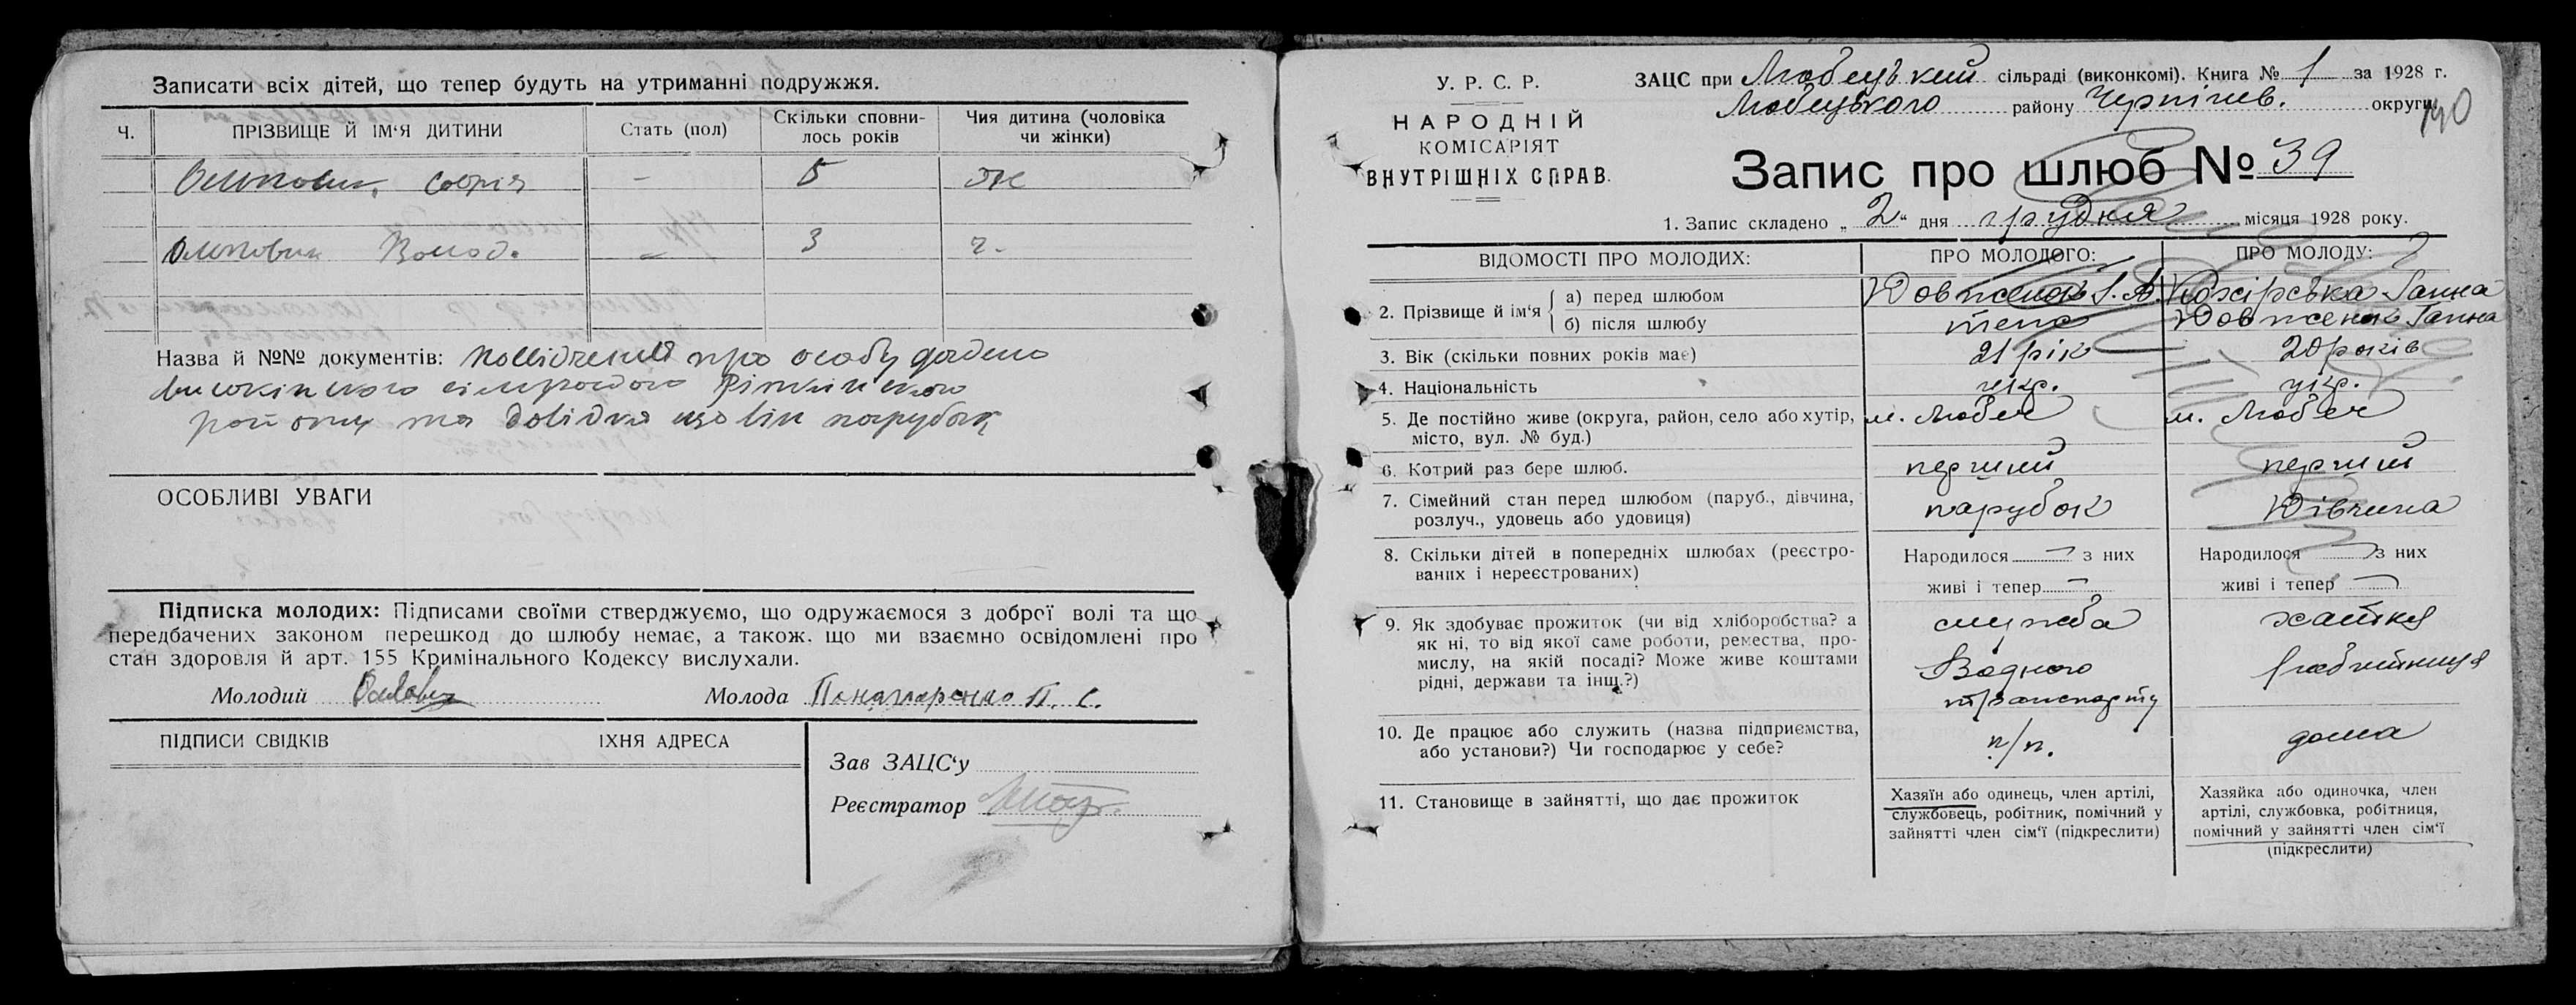 Записати всіх дітей, що тепер будуть на утриманні подружжя.
Ч.
ПРІЗВИЩЕ Й ІМ'Я ДИТИНИ
Стать (пол)
Скільки сповни-
лось років
Чия дитина (чоловіка
чи жінки)
Софія
-
5
ж
Волод.
-
3
ч.
Назва й №№ документів: посвідчення про особу
району та довідка що він парубок
ОСОБЛИВІ УВАГИ
Підписка молодих: Підписами своїми стверджуємо, що одружаємося з доброї волі та що
передбачених законом перешкод до шлюбу немає, а також. що ми взаємно освідомлені про
стан здоровля й арт. 155 Кримінального Кодексу вислухали.
Молодий
Молода Панамаренко П. С.
ПІДПИСИ СВІДКІВ
ІХНЯ АДРЕСА
Зав ЗАЦС'у
Реєстратор
У. Р. С. Р.
НАРОДНІЙ
КОМІСАРІЯТ
ВНУТРІШНІХ СПРАВ.
ЗАЦС при Любецькій сільраді (виконкомі). Книга № 1 за 1928 г.
Любецького району Чернігів. округи.
140
Запис про шлюб № 39
1. Запис складено „ 2 " дня грудня місяця 1928 року.
ВІДОМОСТІ ПРО МОЛОДИХ:
ПРО МОЛОДОГО:
ПРО МОЛОДУ:
2. Прізвище й ім'я
а) перед шлюбом
Довженок І. А.
Ганна
б) після шлюбу
теж
Довженок Ганна
3. Вік (скільки повних років має)
21 рік
20 років
4. Національність
укр.
укр.
5. Де постійно живе (округа, район, село або хутір,
місто, вул. № буд.)
м. Любеч
м. Любеч
6. Котрий раз бере шлюб.
перший
перший
7. Сімейний стан перед шлюбом (паруб., дівчина,
розлуч., удовець або удовиця)
парубок
Дівчина
8. Скільки дітей в попередніх шлюбах (реєстро-
ваних і нереєстрованих)
Народилося — з них
живі і тепер —
Народилося — з них
живі і тепер —
9. Як здобуває прожиток (чи від хліборобства? а
як ні, то від якої саме роботи, ремества, про-
мислу, на якій посаді? Може живе коштами
рідні, держави та інш.?)
служба
Водного
транспорту
хатня
робітниця
10. Де працює або служить (назва підприємства,
або установи?) Чи господарює у себе?
п/п.
дома
11. Становище в зайнятті, що дає прожиток
Хазяїн або одинець, член артілі,
службовець, робітник, помічний у
зайнятті член сім'ї (підкреслити)
Хазяйка або одиночка, член
артілі, службовка, робітниця,
помічний у зайнятті член сім'ї
(підкреслити)